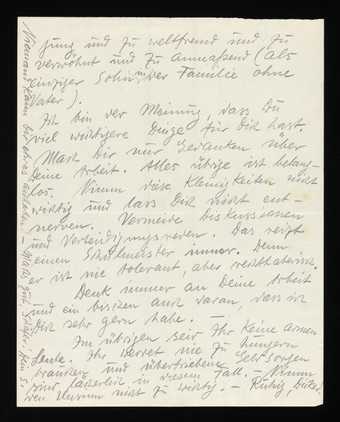 jung und zu weltfremd und zu
verwöhnt und zu anmaßend (als
einziger Sohn in der Familie ohne
Vater).
Ich bin der Meinung, dass Du
viel wichtigere Dinge für Dich hast.
Mach Dir nur Gedanken über
Deine Arbeit. Alles übrige ist belang-
los. Nimm diese Kleinigkeiten nicht
wichtig und lass Dich nicht ent-
nerven. Vermeide Diskussionen
und Verteidigungsreden. Das reizt
einen Schulmeister immer. Denn
er ist nie tolerant, aber rechthaberisch.
Denk immer an Deine Arbeit
und ein bisschen auch daran, dass ich
Dich sehr gern habe. —
Im übrigen seid Ihr keine armen
Leute. Ihr werdet nie zu hungern
brauchen und übertriebene Geldsorgen
sind lächerlich in diesem Fall. — Nimm
den Unsinn nicht zu wichtig. — Ruhig,
Niemand kann